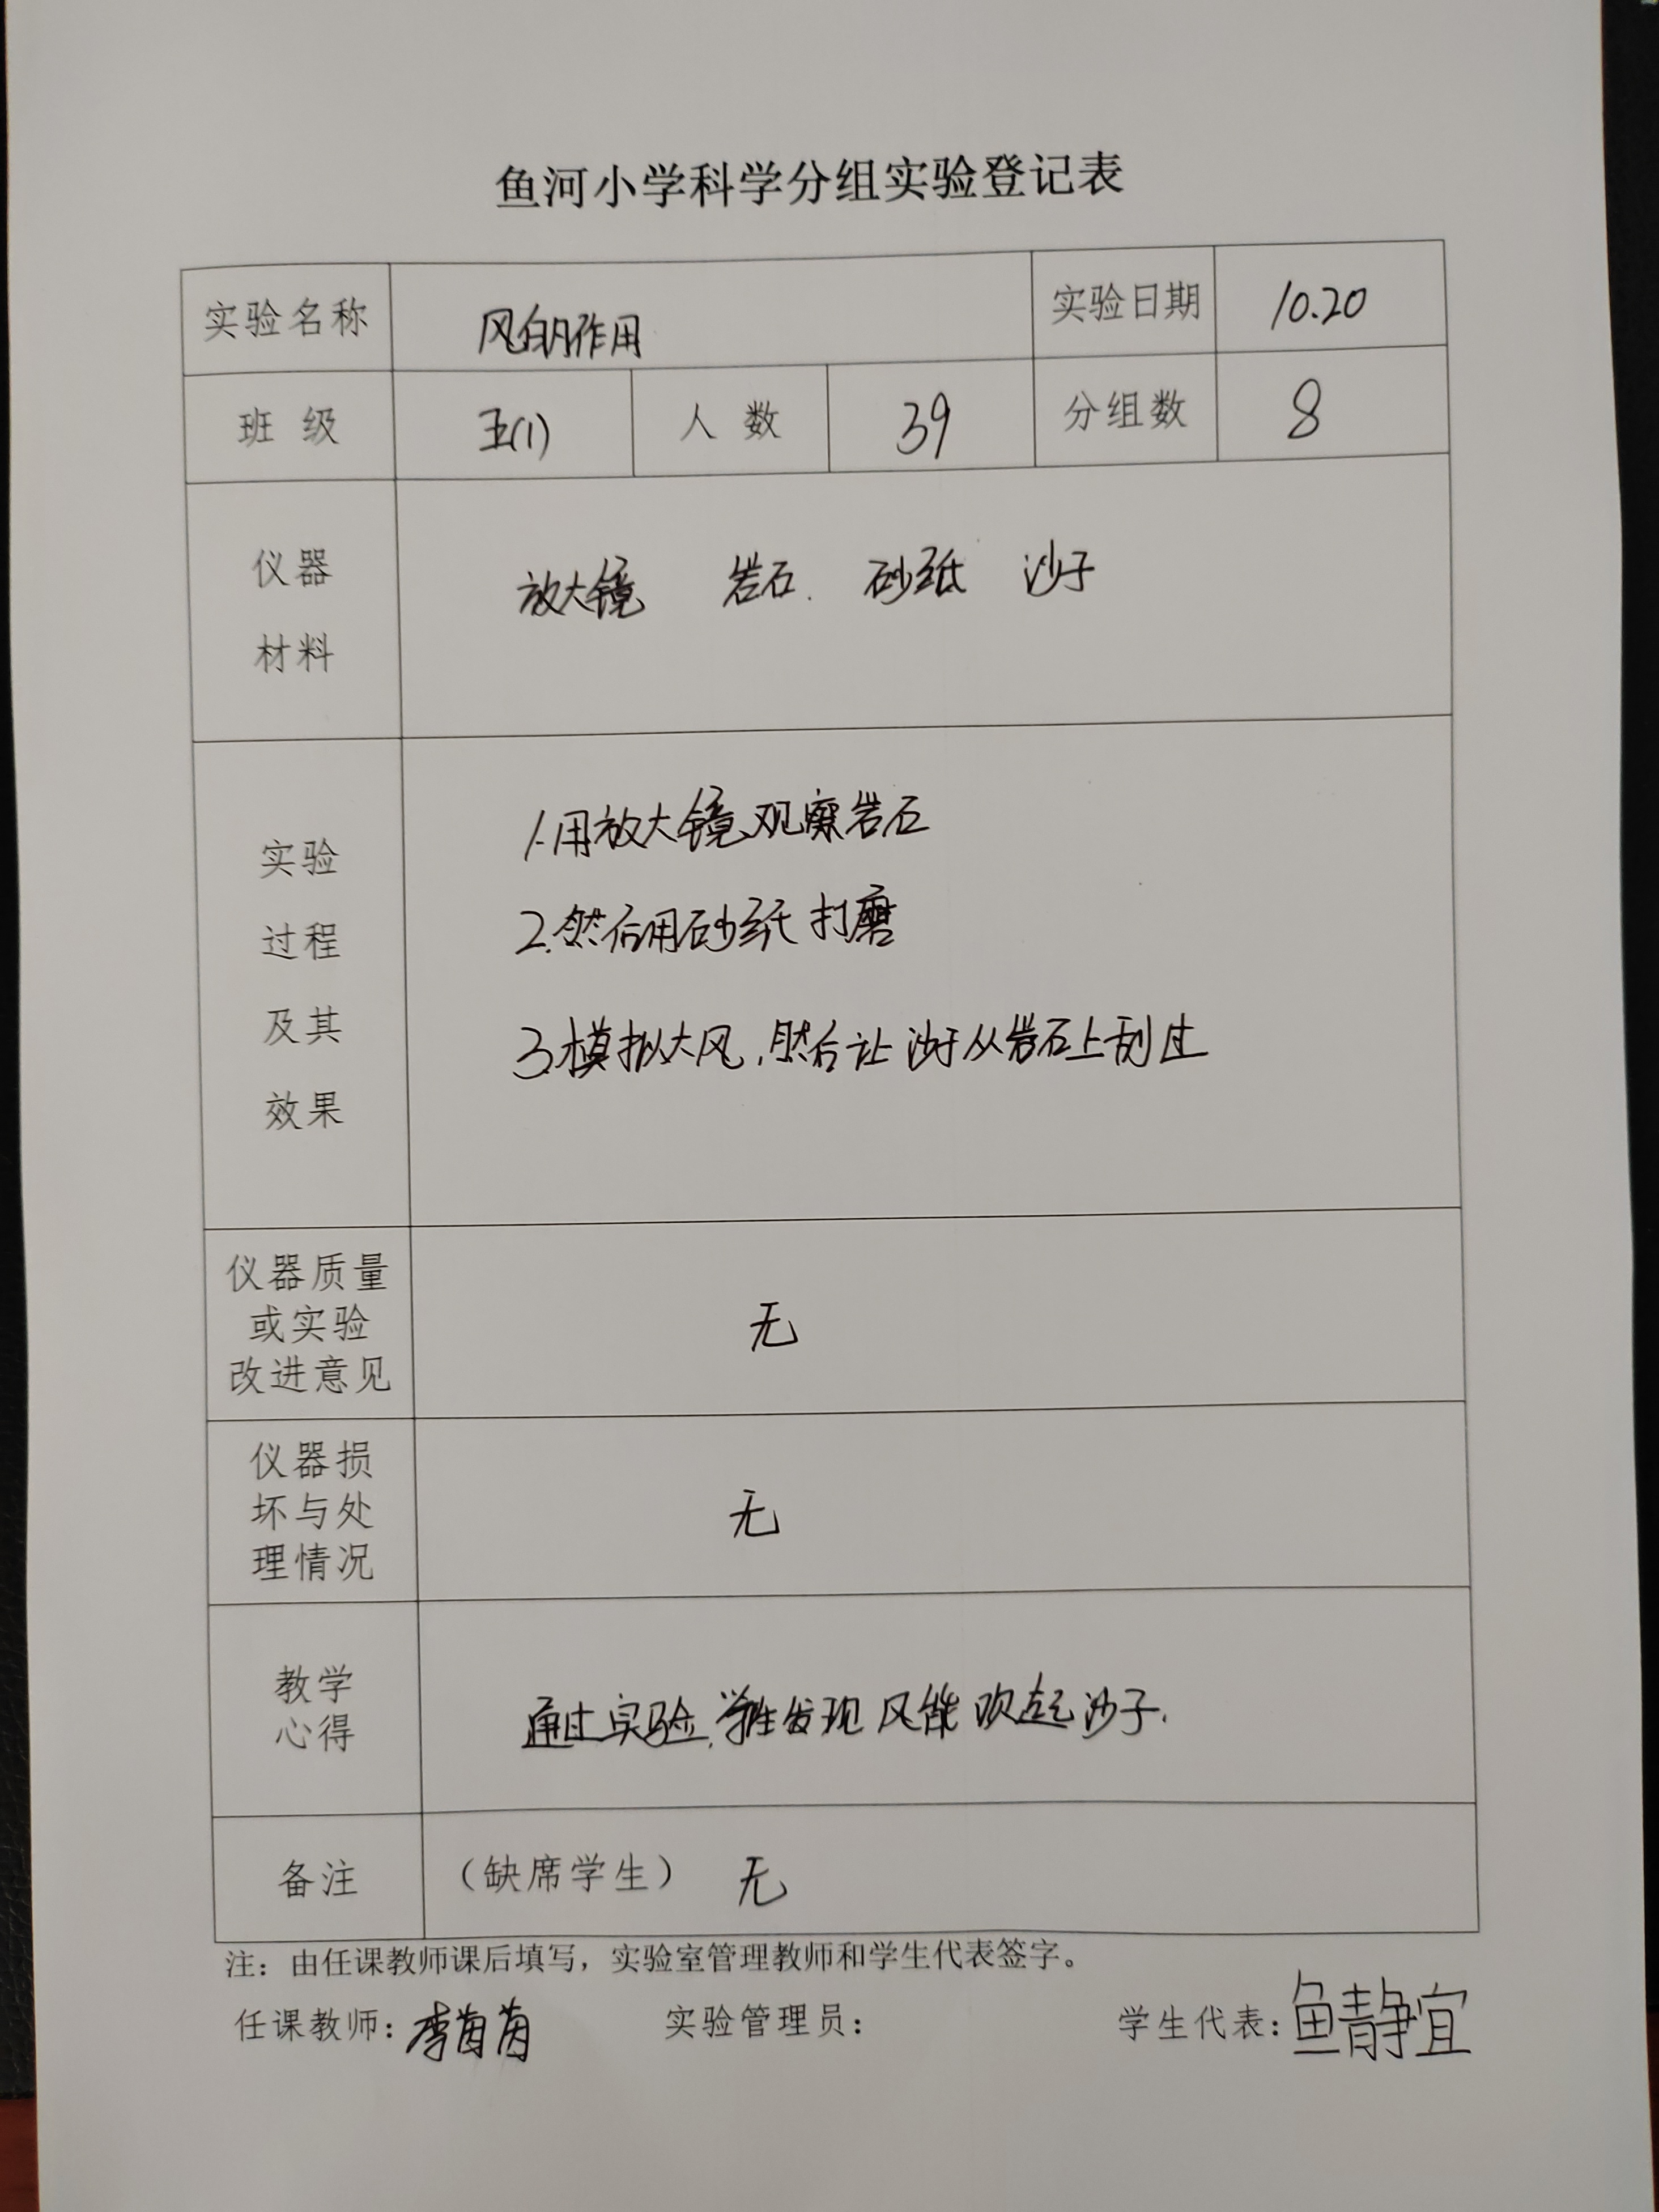 鱼河小学科学分组实验登记表
实验名称 风的作用 实验日期 10.20
班 级 五(1) 人 数 39 分组数 8
仪器
材料
放大镜 岩石. 砂纸 沙子
实验
过程
及其
效果
1.用放大镜观察岩石
2.然后用砂纸打磨
3.模拟大风,然后让沙子从岩石上刮过
仪器质量
或实验
改进意见
无
仪器损
坏与处
理情况
无
教学
心得
通过实验,学生发现风能吹起沙子.
备注 (缺席学生) 无
注：由任课教师课后填写，实验室管理教师和学生代表签字。
任课教师：李 实验管理员： 学生代表：鱼静宜